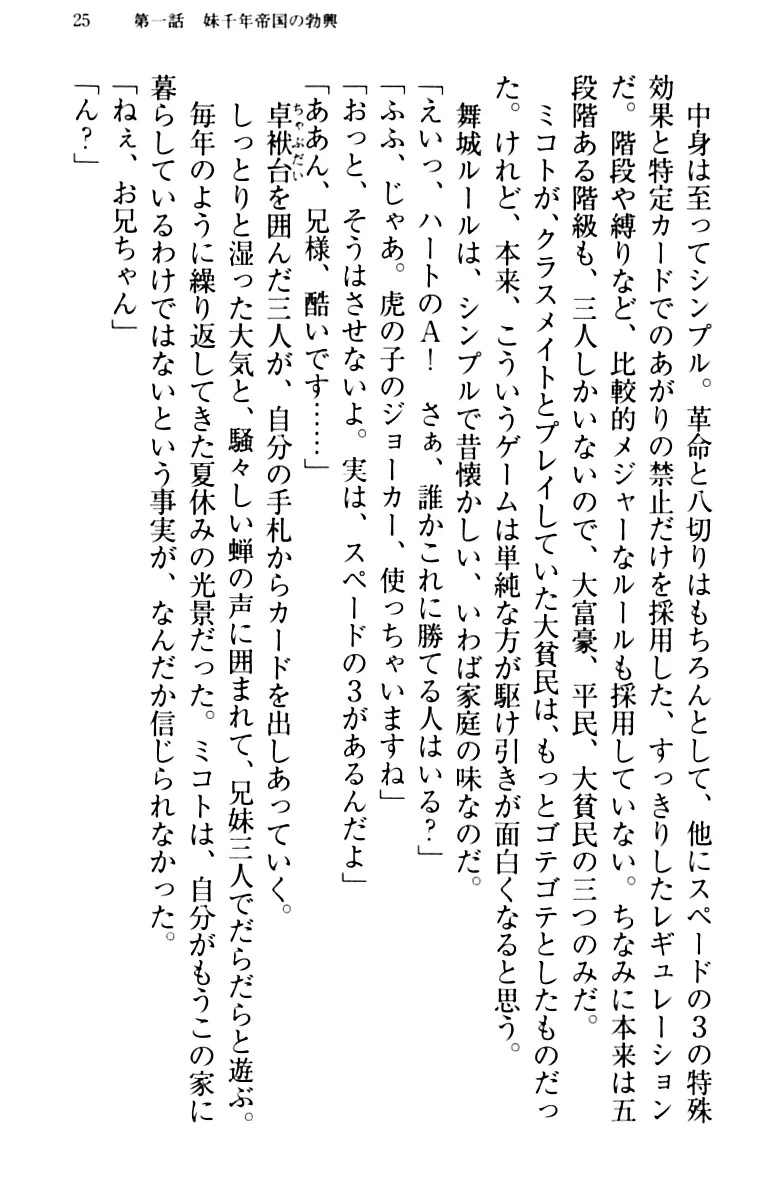 25　第一話　妹千年帝国の勃興
　中身は至ってシンプル。革命と八切りはもちろんとして、他にスペードの３の特殊
効果と特定カードでのあがりの禁止だけを採用した、すっきりしたレギュレーション
だ。階段や縛りなど、比較的メジャーなルールも採用していない。ちなみに本来は五
段階ある階級も、三人しかいないので、大富豪、平民、大貧民の三つのみだ。
　ミコトが、クラスメイトとプレイしていた大貧民は、もっとゴテゴテとしたものだっ
た。けれど、本来、こういうゲームは単純な方が駆け引きが面白くなると思う。
　舞城ルールは、シンプルで昔懐かしい、いわば家庭の味なのだ。
「えいっ、ハートのＡ！　さぁ、誰かこれに勝てる人はいる？」
「ふふ、じゃあ。虎の子のジョーカー、使っちゃいますね」
「おっと、そうはさせないよ。実は、スペードの３があるんだよ」
「ああん、兄様、酷いです……」
　卓袱台ちゃぶだいを囲んだ三人が、自分の手札からカードを出しあっていく。
　しっとりと湿った大気と、騒々しい蝉の声に囲まれて、兄妹三人でだらだらと遊ぶ。
　毎年のように繰り返してきた夏休みの光景だった。ミコトは、自分がもうこの家に
暮らしているわけではないという事実が、なんだか信じられなかった。
「ねぇ、お兄ちゃん」
「ん？」